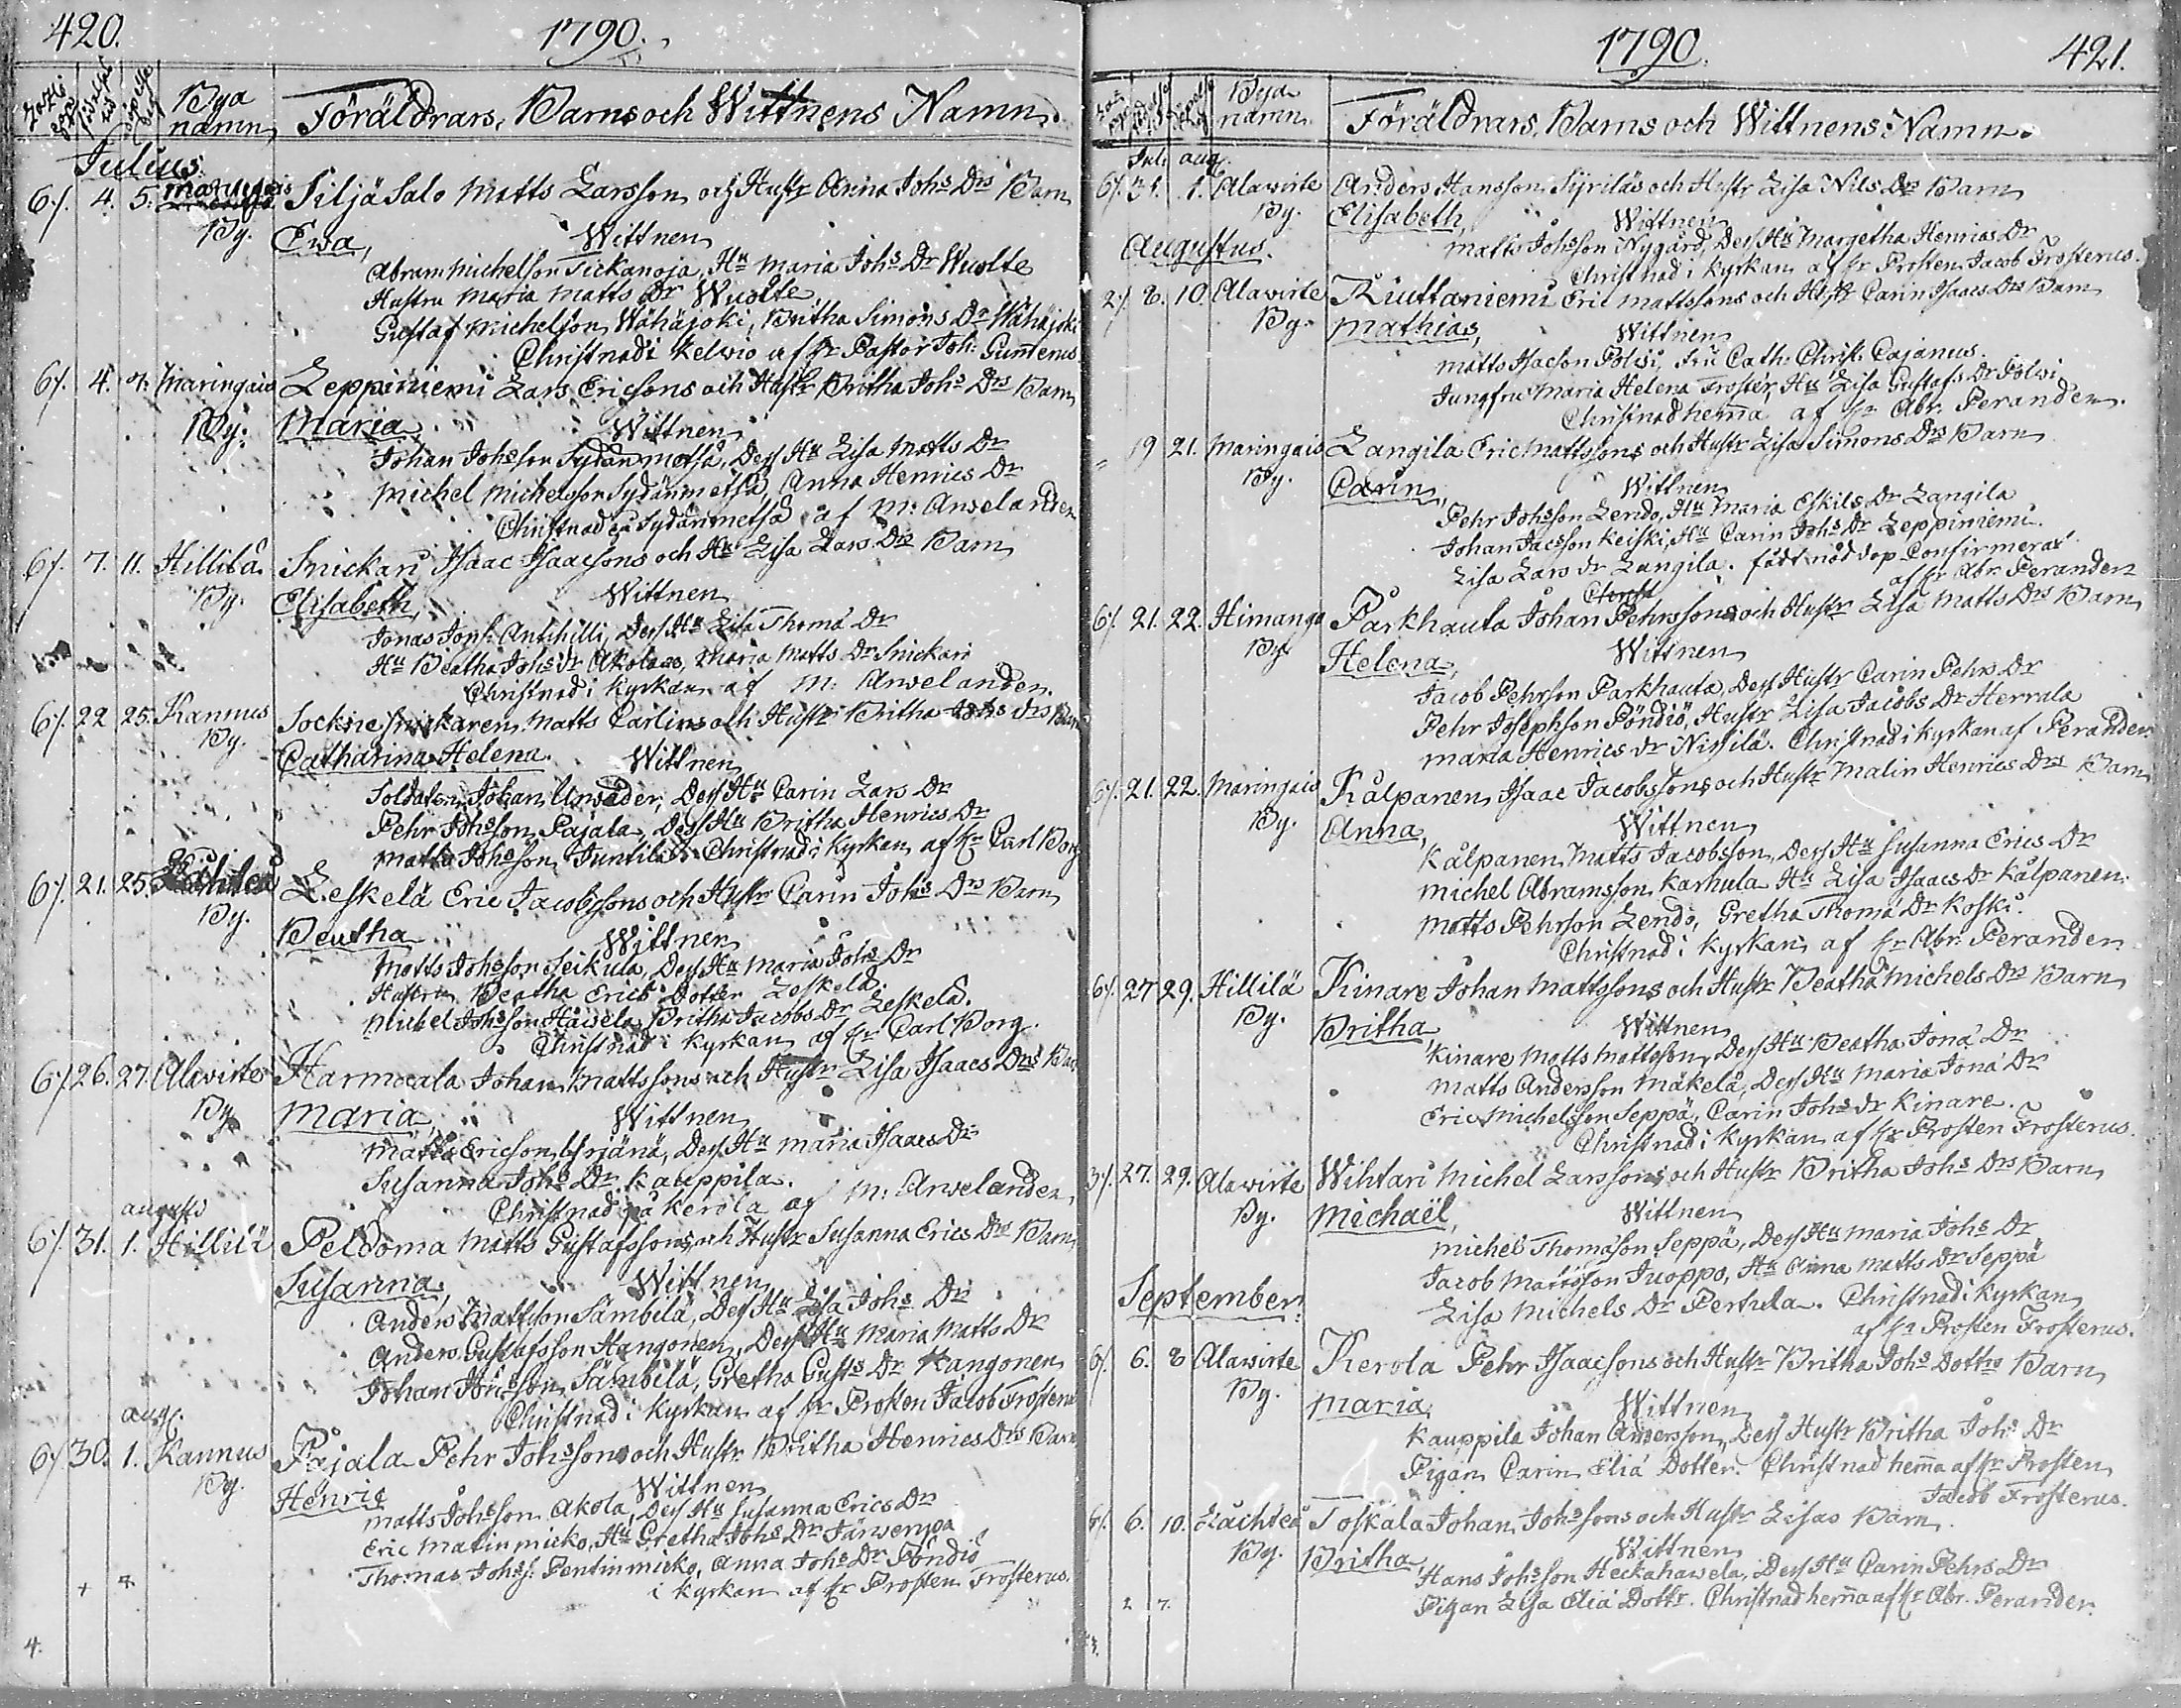 420.
1790.
Bya namn
Föräldrars, Barns och Wittnens Namn.
Julius.
6/. 4. 5. Maringais Siljäsalo Matts Larsson och Hustr Anna Johs Drs Barn
By. Ewa, Wittnen
Abram Michelson Tickanoja, Hu Maria Johs Dr Wuolte
Hustru Maria Matts Dr Wuolte
Gustaf Michelson Wähäjoki, Britha Simons Dr Wähäjoki
Christnad i Kelvio af Hr Pastor Joh: Gummerus
6/. 4. Maringais Leppiniemi Lars Ericsons och Hustr Britha Johs Drs Barn
By. Maria, Wittnen
Johan Johsson Sydänmetsä, Dess Hu Lisa Matts Dr
Michel Michelsson Sydänmetsä, Anna Henrics Dr
Christnad på Sydänmetsä af M: Arvelanden
6/. 7. 11. Hillilä Snickari Isaac Isaacsons och Hu Lisa Lars Drs Barn
By. Elisabeth, Wittnen
Jonas Jons: Anthilli, Dess Hu Lisa Thoma Dr
Hu Beatha Johs dr Akola, Maria Matts Dr Snickari
Christnad i Kyrkan af M: Arvelanden.
6/. 22 25. Kannus Sockne Snickaren Matts Carlins och Hustr Britha Johs drs Barn
By. Catharina Helena. Wittnen
Soldaten Johan Dess Hu Carin Lars Dr
Pehr Johsson Pajala, Dess Hu Britha Henrics Dr
Matts Johsson Juntila Christnad i Kyrkan af Hr Carl Borg
6/. 21. 25. Leskelä Eric Jacobssons och Hustr Carin Johs Drs Barn
By. Beatha Wittnen
Matts Johsson Seikula, Dess Hu Maria Johs Dr
Hustru Beatha Erics Dotter Leskelä.
Michel Johsson Häwelä, Britha Jacobs Dr Leskelä.
Christnad i Kyrkan af Hr Carl Borg.
6/. 26. 27. Alawirte Harmaala Johan Mattssons och Hustr Lisa Isaacs Drs Bar
By Maria, Wittnen
Matts Ericson Yrjänä, Dess Hu Maria Isaacs Dr
Susanna Johs Dr Kauppila.
Christnad på Kerola af M: Arvelanden
augusti
6/. 31. 1. Hillilä Peldoma Matts Gustafssons och Hustr Susanna Erics Drs Barn
Susanna, Wittnen
Anders Mattsson Sämbilä, Dess Hu Lisa Johs Dr
Anders Gustafsson Hangonen, Dess Hu Maria Matts Dr
Johan Johsson Sämbilä, Gretha Gusts Dr Kangonen
Christnad i Kyrkan af Hr Prosten Jacob Frosterus
aug.
6/. 30. 1. Kannus Pajala Pehr Johssons och Hustr Britha Henrics Drs Barn
By. Henric Wittnen
Matts Johsson Akola, Dess Hu Susanna Erics Dr
Eric Matinmicko, Hu Gretha Johs Dr Järwenpä
Thomas Johss: Pentinmicko, Anna Johs Dr Pöndiö
i Kyrkan af Hr Prosten Frosterus.
4.
1790. 421.
Bya namn. Föräldrars, Barns och Wittnens Namn.
Jul. aug.
6/. 31. 1. Alawirte Anders Hansson Syriläs och Hustr Lisa Nils Drs Barn
By. Elisabeth, Wittnen
Matts Johsson Nygård, Dess Hu Margetha Henrics Dr
Christnad i Kyrkan af Hr Prosten Jacob Frosterus.
Augustus.
2/. 8. 10. Alawirte Kiuttaniemi Eric Mattssons och Hustr Carin Isaacs Drs Barn
By. Mathias, Wittnen
Matts Isacson Polwi, Fru Cath: Christ: Cajanus.
Jungfru Maria Helena Froster, Hu Lisa Gustafs Dr Polwi
Christnad hema af Hr Abr: Peranden.
19 21. Maringais Langila Eric Mattssons och Hustr Lisa Simons Drs Barn
By. Carin, Wittnen
Pehr Johsson Lendo, Hu Maria Eskils Dr Langila
Johan Jacsson Keiski, Hu Carin Johs Dr Leppiniemi.
Lisa Lars dr Langila. född nöddop Confirmerat
af Hr Abr: Peranden
6/. 21. 22. Himango Parkhauta Johan Pehrssons och Hustr Lisa Matts Drs Barn
By. Helena, Wittnen
Jacob Pehrson Parkhauta, Dess Hustr Carin Pehrs Dr
Pehr Josephson Pöndiö, Hustr Lisa Jacobs Dr Herrala
Maria Henrics dr Nissilä. Christnad i Kyrkan af Peranden
6/. 21. 22. Maringais Kålpanen Isaac Jacobssons och Hustr Malin Henrics Drs Barn
By. Anna, Wittnen
Kålpanen Matts Jacobsson, Dess Hu Susanna Erics Dr
Michel Abramsson Karhula Hu Lisa Isaacs Dr Kålpanen.
Matts Pehrson Lendo, Gretha Thoma Dr Koski.
Christnad i Kyrkan af Hr Abr: Peranden
6/. 27 29. Hillilä Kinare Johan Mattssons och Hustr Beatha Michels Drs Barn
By. Britha, Wittnen
Kinare Matts Mattsson, Dess Hu Beatha Jona Dr
Matts Andersson Mäkelä, Dess Hu Maria Jona Dr
Eric Michelsson Seppä, Carin Johs dr Kinare.
Christnad i Kyrkan af Hr Prosten Frosterus.
3/. 27. 29. Alawirte Wihtari Michel Larssons och Hustr Britha Johs Drs Barn
By. Michaël, Wittnen
Michel Thomason Seppä, Dess Hu Maria Johs Dr
Jacob Mattsson Juoppo, Hu Anna Matts Dr Seppä
Lisa Michels Dr Pertula. Christnad i Kyrkan
af Hr Prosten Frosterus.
September.
6/. 6. 8 Alawirte Kerola Pehr Isaacsons och Hustr Britha Johs Dottrs Barn
By. Maria, Wittnen
Kauppila Johan Andersson, Dess Hustr Britha Johs Dr
Pigan Carin Elia Dotter. Christnad hema af Hr Prosten
Jacob Frosterus.
6. 10. Lachteå Toskala Johan Johssons och Hustr Lisas Barn.
By. Britha, Wittnen
Hans Johsson Heckahawela, Dess Hu Carin Pehrs Dr
Pigan Lisa Elia Dottr. Christnad hema af Hr Abr. Peranden.
2 7.